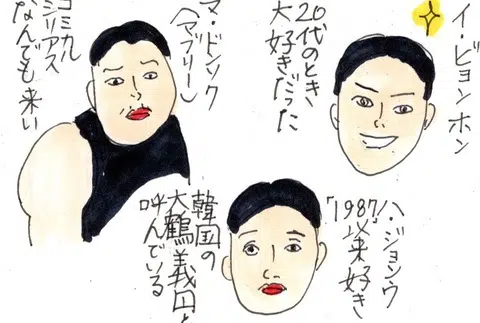 イ・ビョンホン
20代のとき、
大好きだった
マ・ドンソク
(マブリー)
コミカル
シリアス
なんでも来い
ハ・ジョンウ
「1987」
以来好き
韓国の
大鶴義丹と
呼んでいる